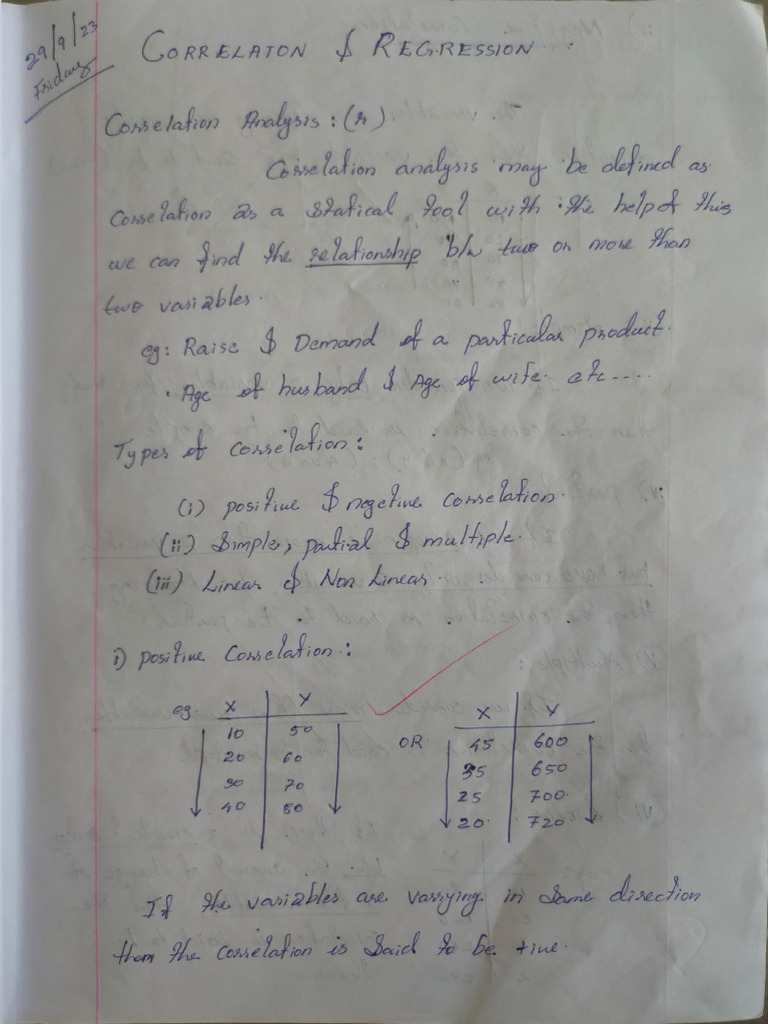 29/9/23
Friday
CORRELATON & REGRESSION :
Correlation Analysis : (r)
Correlation analysis may be defined as
Correlation as a Statical tool with the help of this
we can find the relationship b/w two or more than
two variables.
eg: Raise & Demand of a particular product.
• Age of husband & Age of wife. etc ....
Types of Correlation :
(i) positive & negetive Correlation.
(ii) Simple, partial & multiple.
(iii) Linear & Non Linear.
i) positive Correlation :
eg X Y
10 50
20 60
30 70
40 80
OR
X Y
45 600
35 650
25 700
20 720
If the variables are varrying in Same direction
then the correlation is Said to be +ive.